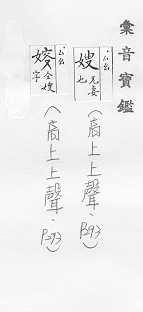 彙音寶鑑
嫂 兄妻也
(高上上聲、P293)
仝嫂字
(高上上聲、P293)